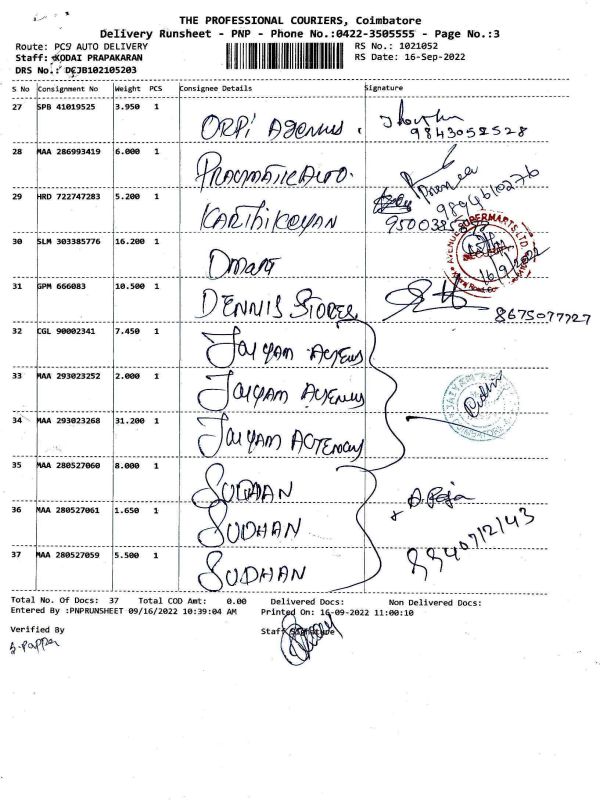 THE PROFESSIONAL COURIERS, Coimbatore
Delivery Runsheet - PNP - Phone No.:0422-3505555 - Page No.:3
Route: PC9 AUTO DELIVERY
RS No.: 1021052
Staff: KODAI PRAPAKARAN
RS Date: 16-Sep-2022
DRS No.: DCJB102105203
S No Consignment No Weight PCS Consignee Details Signature
27 SPB 41019525 3.950 1 ORPI Agencies
9843052528
28 MAA 286993419 6.000 1 PRAGMATIC AUTO.
9894610276
29 HRD 722747283 5.200 1 KARTHIKEYAN
30 SLM 303385776 16.200 1 Dmart
AVENUE SUPERMARTS LTD.
16/9/2022
31 GPM 666083 10.500 1 DENNIS STORES
8675077727
32 CGL 90002341 7.450 1 JAIYAM AGENCY
33 MAA 293023252 2.000 1 JAIYAM AGENCY
34 MAA 293023268 31.200 1 JAIYAM AGTENCY
35 MAA 280527060 8.000 1 SUDHAN
A. Raja
36 MAA 280527061 1.650 1 SUDHAN
9940712143
37 MAA 280527059 5.500 1 SUDHAN
Total No. Of Docs: 37 Total COD Amt: 0.00 Delivered Docs: Non Delivered Docs:
Entered By :PNPRUNSHEET 09/16/2022 10:39:04 AM Printed On: 16-09-2022 11:00:10
Verified By Staff Signature